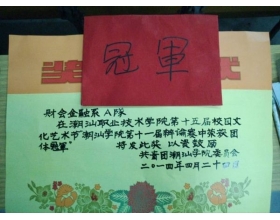 奖状
冠軍
财会金融系A队
在潮汕职业技术学院第十五届校园文
化艺术节"潮汕学院第十一届辩论赛中荣获团
体冠军"将发此奖以资鼓励
共青团潮汕学院委员会
二〇一四年四月二十四日